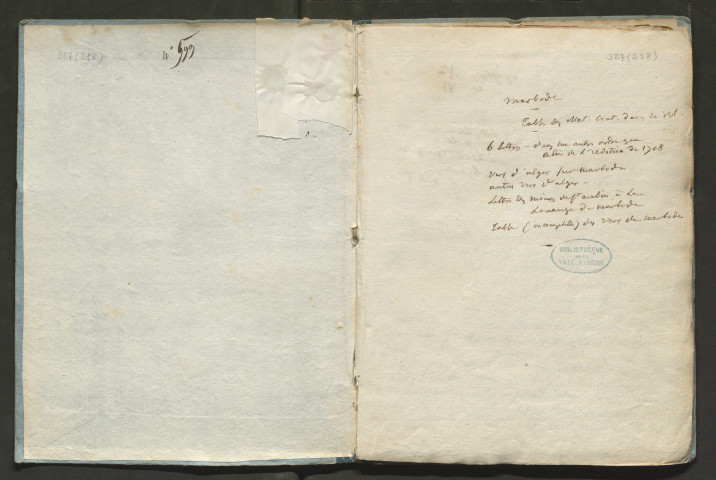 327(318)
N° 599
327(318)
Marbode
Table des Mat. Cont. dans ce Vol
6 lettres - dans un autre ordre que
celui de l'edition de 1708
vers d'ulger sur marbode
autres vers d'ulger -
Lettre des moines de St aubin à la
Louange de marbode
Table (incomplette) des vers de marbode
BIBLIOTHÈQUE
DE LA
VILLE D'ANGERS